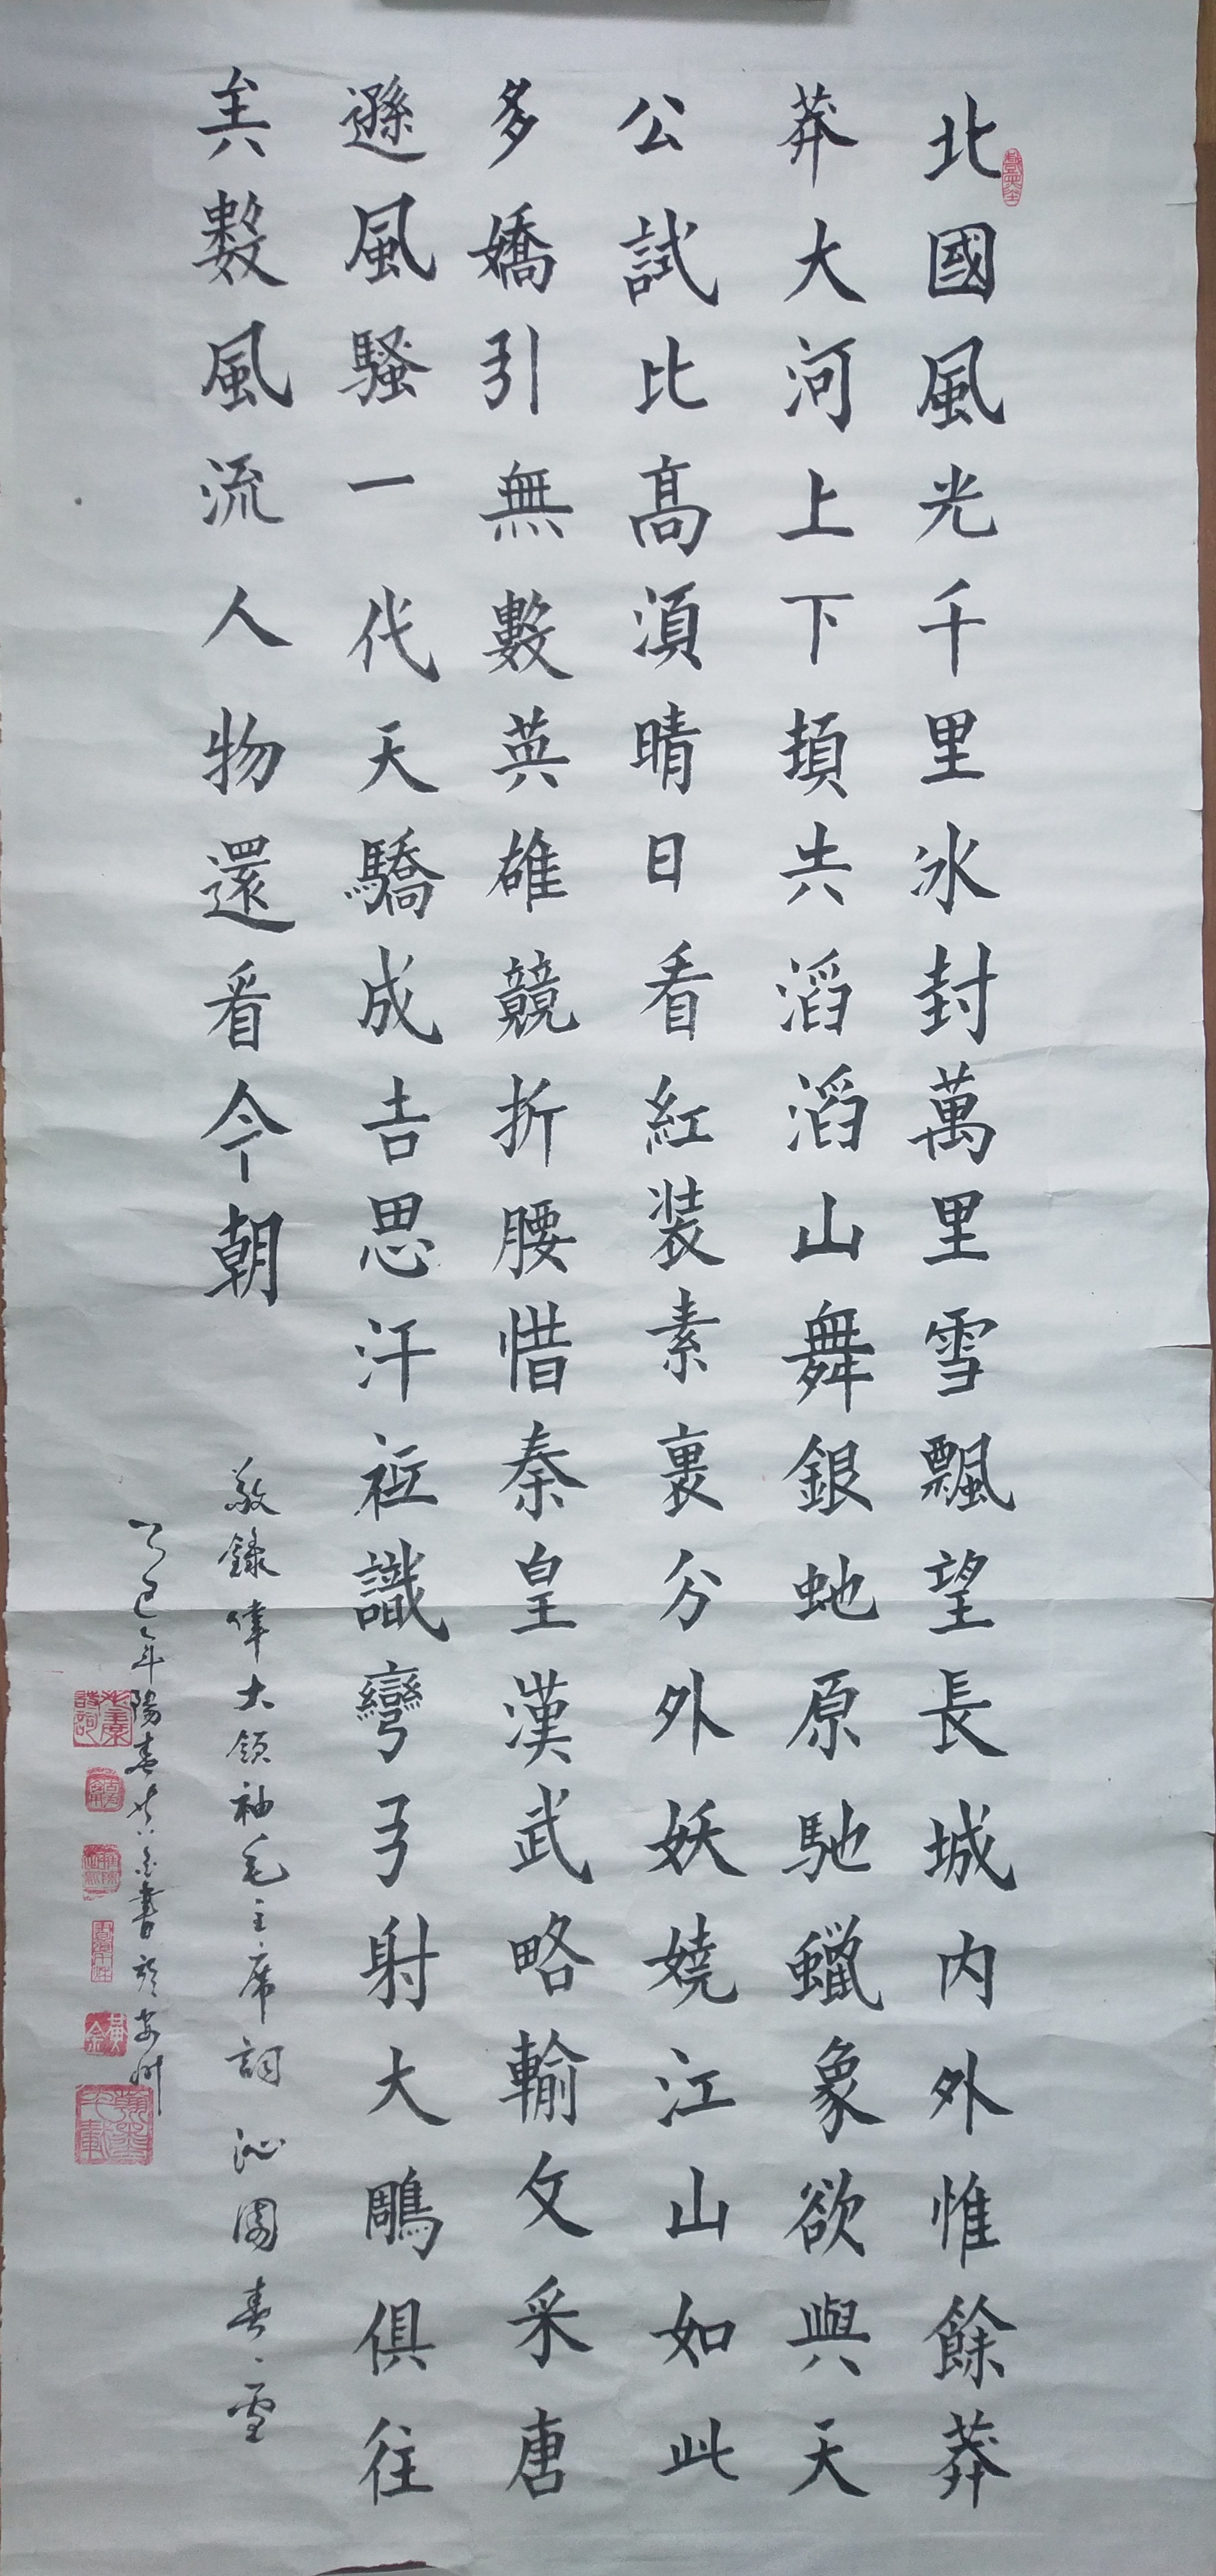 北國風光千里冰封萬里雪飄望長城内外惟餘莽
莽大河上下頓失滔滔山舞銀虵原馳蠟象欲與天
公試比髙須晴日看紅装素裹分外妖嬈江山如此
多嬌引無數英雄競折腰惜秦皇漢武略輸文采唐
遜風騷一代天驕成吉思汗袛識彎弓射大鵰俱往
矣數風流人物還看今朝
敬錄偉大領袖毛主席詞沁園春雪
乙巳年陽春黄金書於安州
毛主席詩詞
黄金